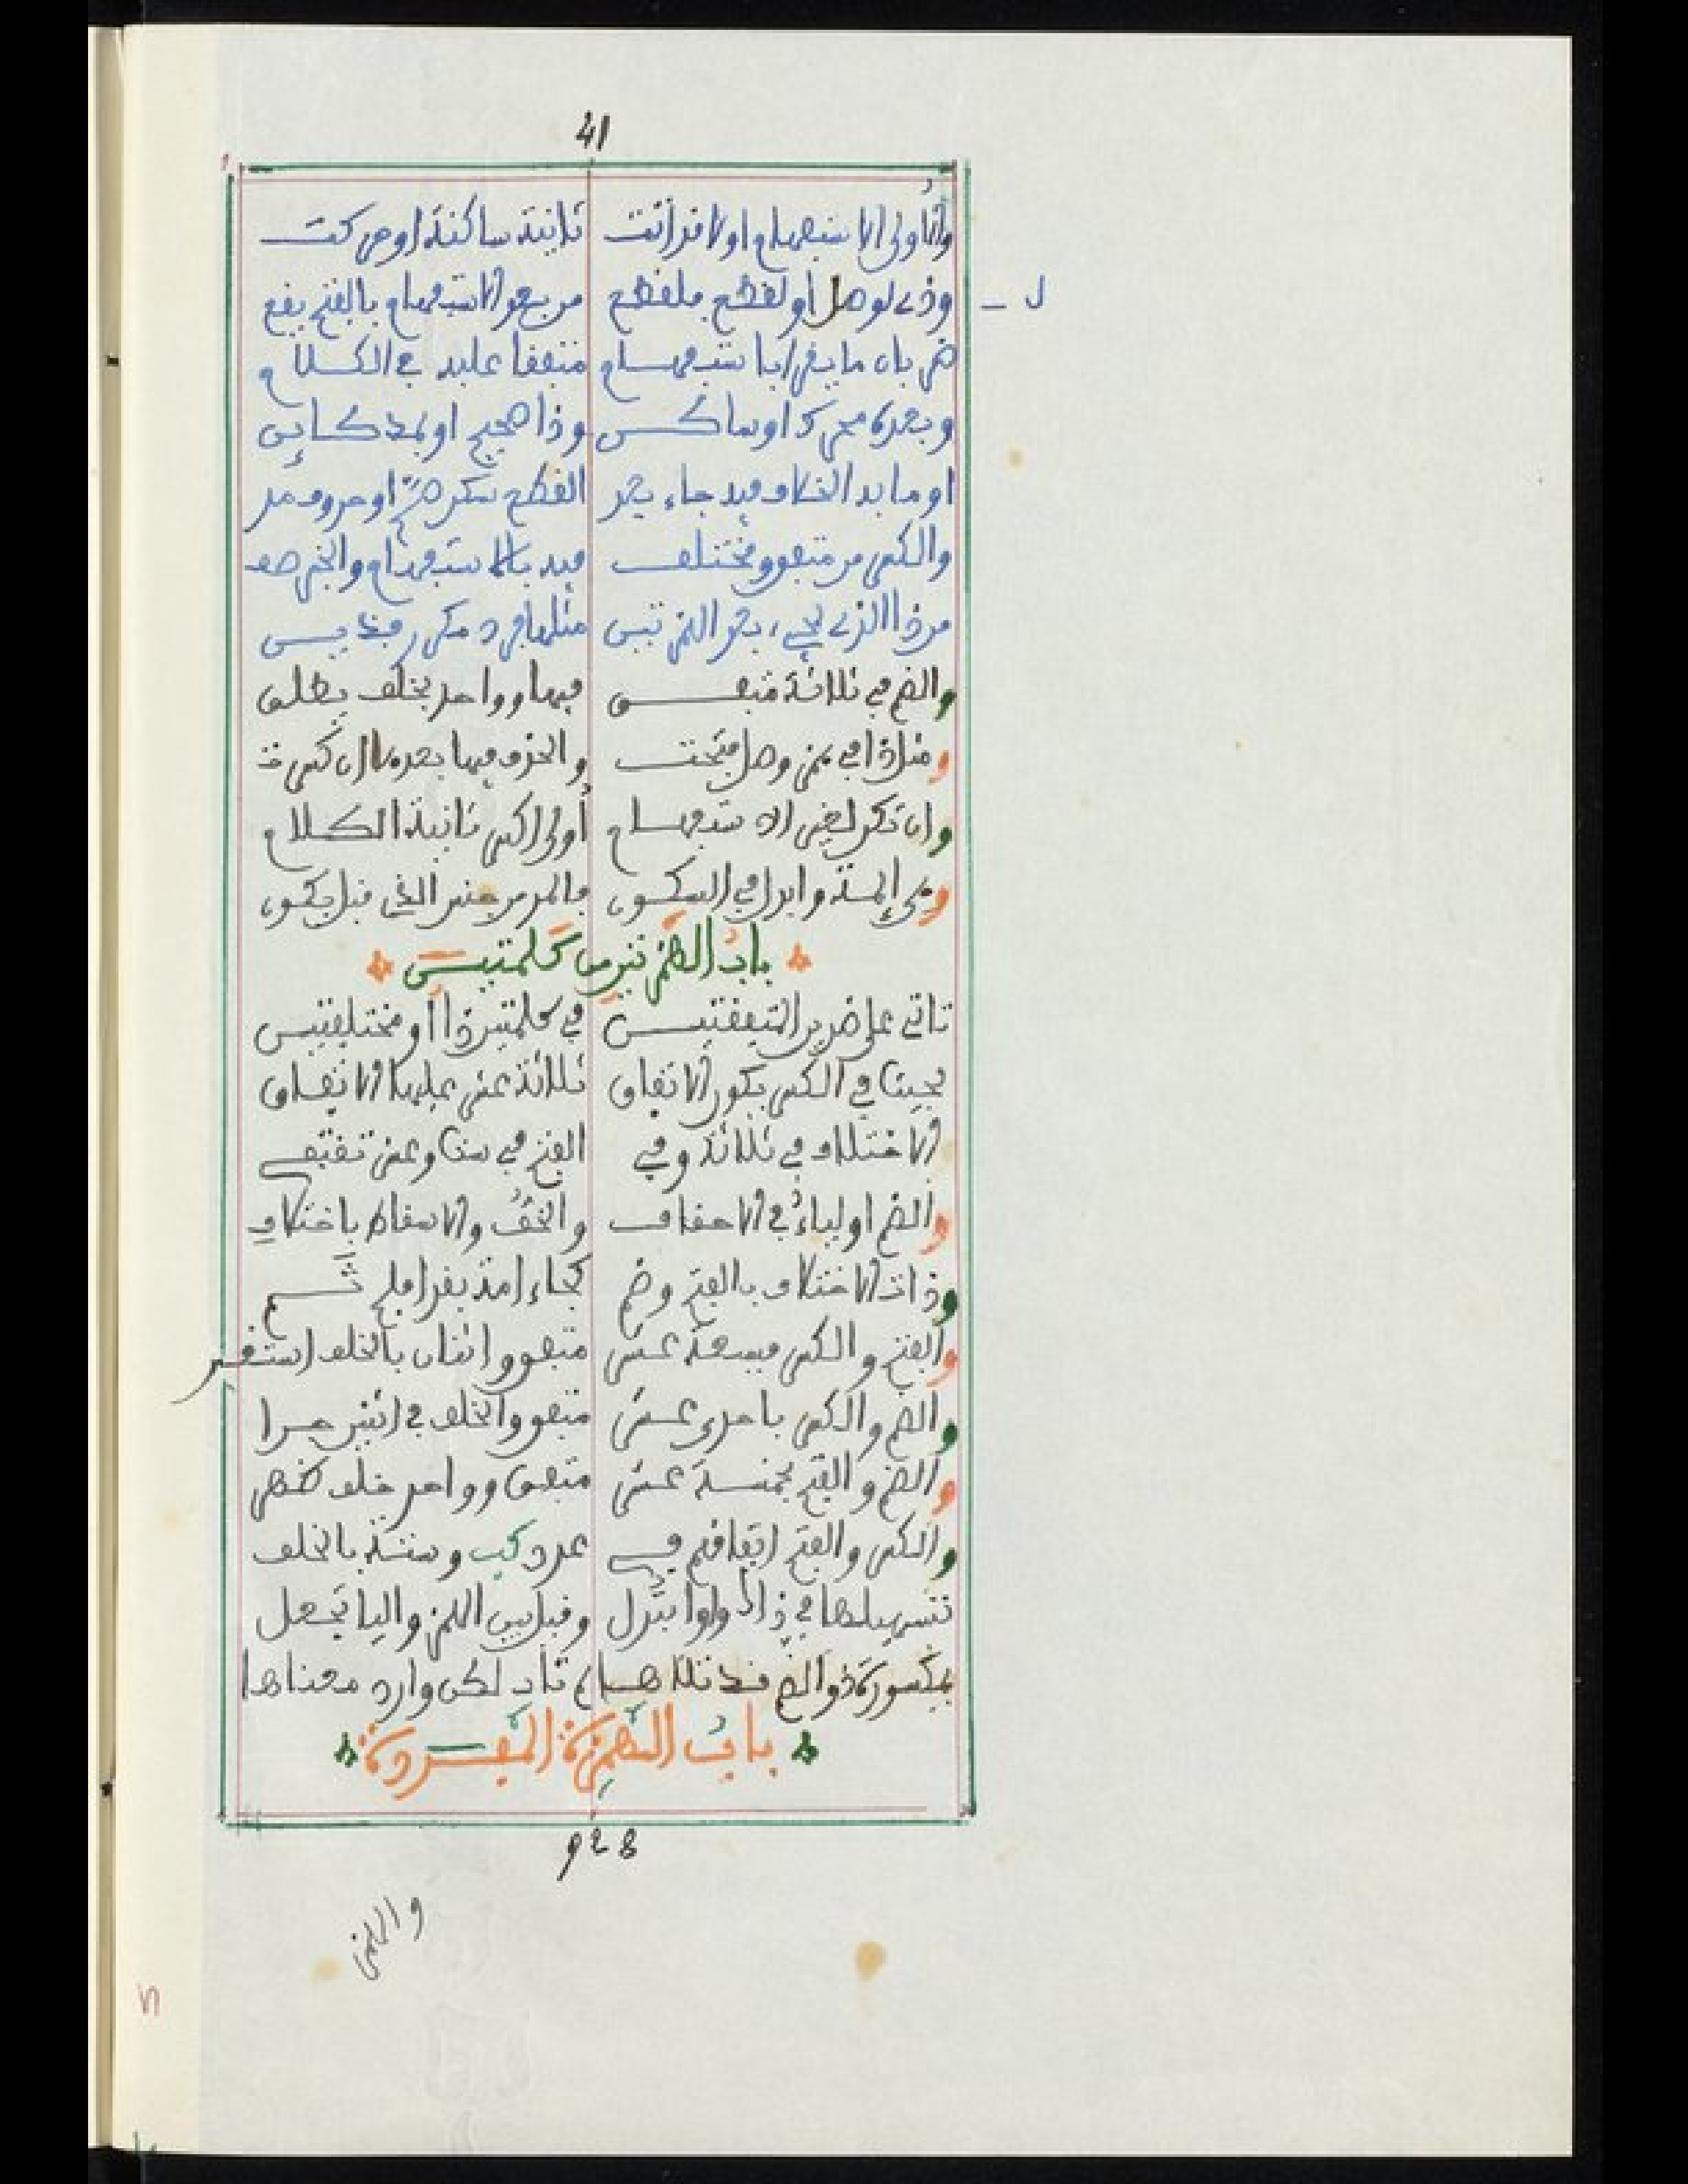 41
والاولى الاستفهام اولا قد اتت ثانية ساكنة او حركت
وذي لوصل او لقطع بلقطع مع الاستفهام بالفتح يقع
ضربان ما يقرا باستفهام متفقا عليه في الكلام
وبعده محرك او ساكن وذا صحيح او بمد كائن
او ما به الخلاف فيه جاء بعد القطع سكن صح او حروف مد
والكسر من متفق ومختلف فيه بالاستفهام والخبر صف
من ذا الذي يجيء بعد الهمزتين
والضم في ثلاثة متفق فيها وواحد بخلف يطلق
ومثل ذا في همز وصل فتحت والحذف فيها بعده ان كسرت
وان تكن لغير الاستفهام اولى الكسر ثانية الكلام
في الستة وابدل في السكون بالمد من جنس الذي قبل يكون
باب الهمزتين من كلمتين
تاتي على ضربين متفقتين في كلمتين ذا او مختلفتين
فجيتا في الكسر بكون الاتفاق ثلاثة عشر عليها الاتفاق
الاختلاف في ثلاثة وفي الفتح في ستا وعشر تقتفي
والضم اولياء في الاحقاف والخف والاسقاط باختلاف
وذات الاختلاف بالفتح وضم كجاء امة بقد افلح ثم
والفتح والكسر فبسعة عشر متفق واثنان بالخلف استقر
والضم والكسر باحدى عشر متفق والخلف في اثنين جرا
والضم والفتح بخمسة عشر متفق وواحد خلف ظهر
والكسر والفتح اتفاقهم في عدد كيب وستة بالخلف
تسهيلها في ذا واوا تبدل وقيل بين الهمز واليا تجعل
بمكسورة ذو الضم قد تلاها لم تات لكن وارد معناها
باب الهمزة المفردة
928
والهمز